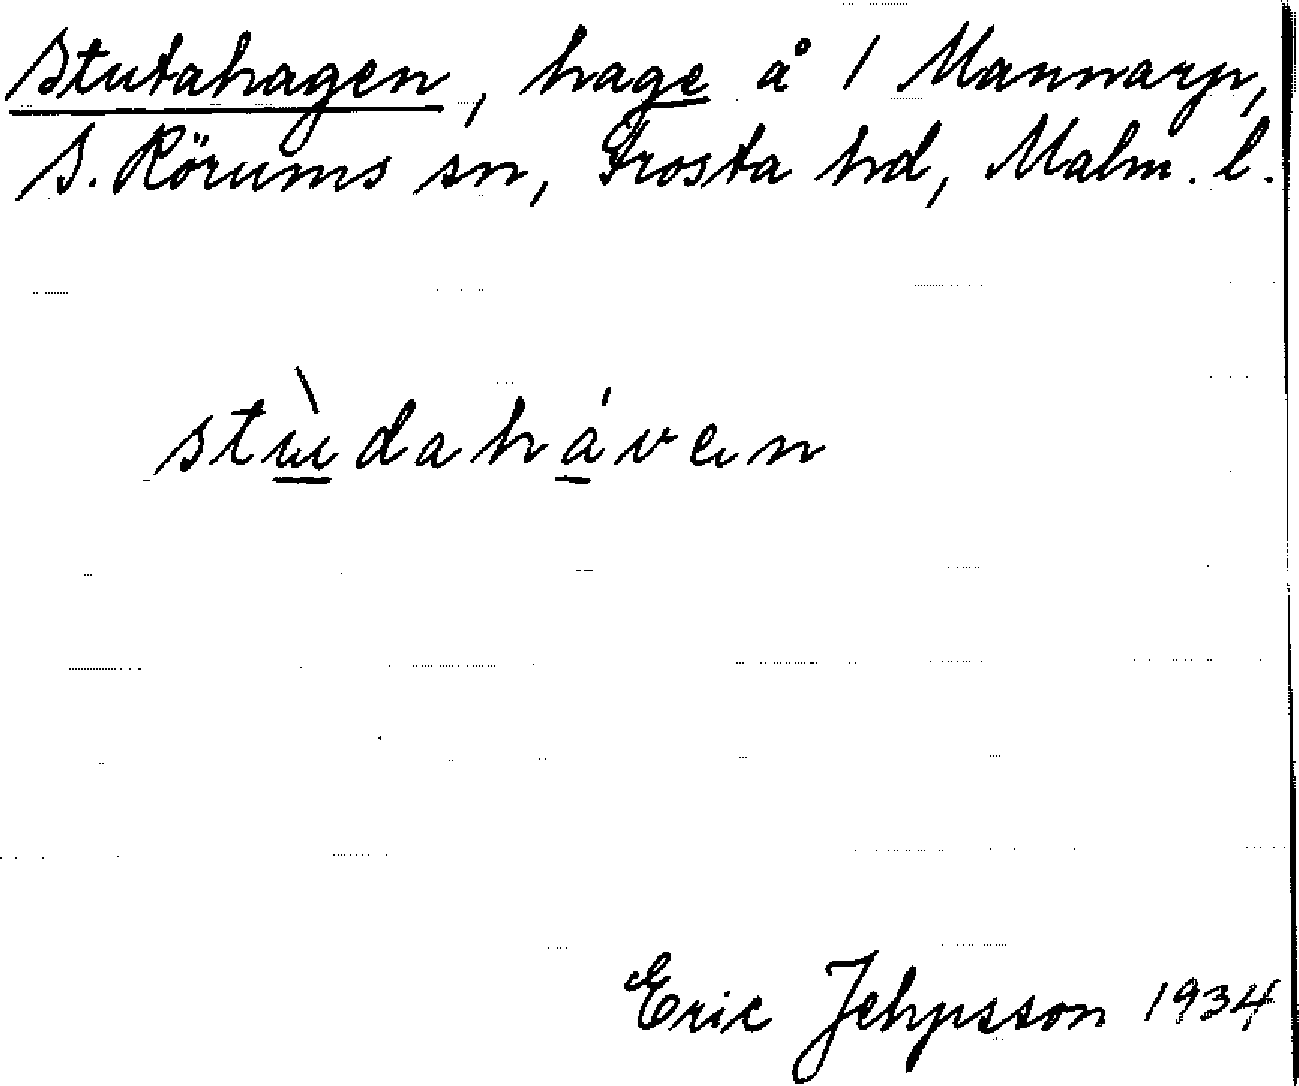 Stutahagen, hage å 1 Mannarp,
S. Rörums sn, Frosta hd, Malm. l.
stùdaháven
Eric Jehpsson 1934